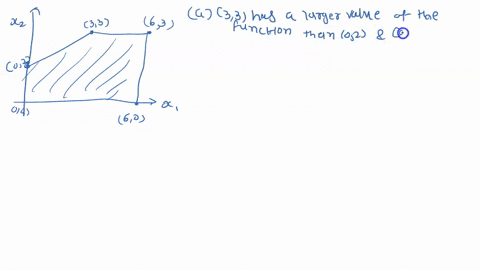 x₂
(3,3)
(6,3)
(a) (3,3) has a larger value of the
function than (0,2) & (6
(0,2)
x₁
0,0)
(6,0)